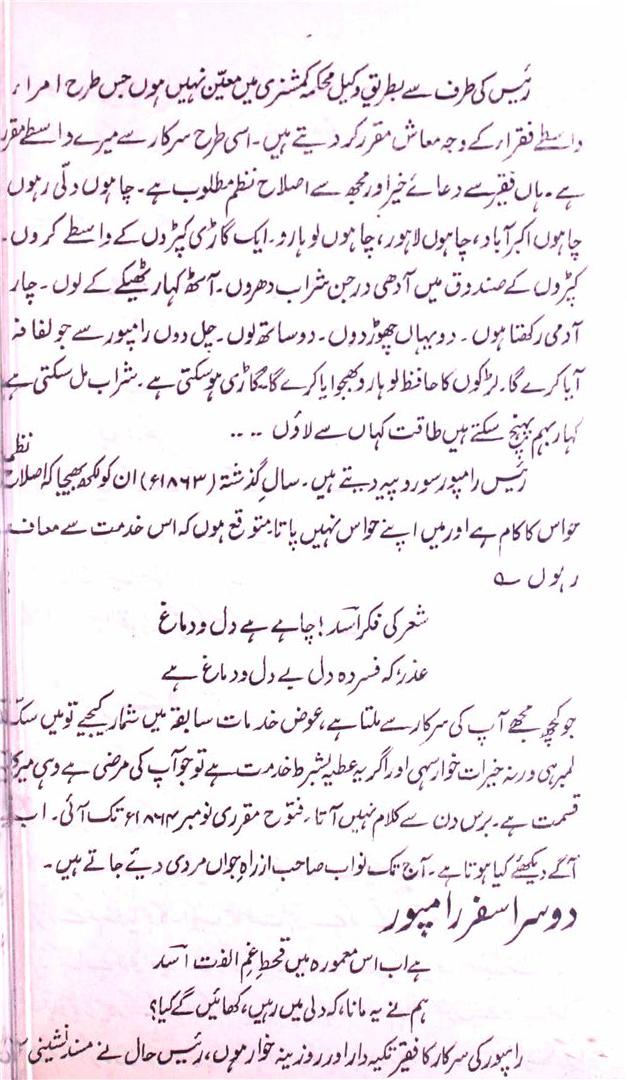 رئیس کی طرف سے بطریق وکیل محکمہ کمشنری میں معیّن نہیں ہوں جس طرح امراء
واسطے فقراء کے وجہ معاش مقرر کر دیتے ہیں۔ اسی طرح سرکار سے میرے واسطے مقرر
ہے۔ ہاں فقیر سے دعائے خیر اور مجھ سے اصلاح نظم مطلوب ہے۔ چاہوں دلّی رہوں
چاہوں اکبر آباد، چاہوں لاہور، چاہوں لوہارو۔ ایک گاڑی کپڑوں کے واسطے کروں۔
کپڑوں کے صندوق میں آدھی درجن شراب دھروں۔ آٹھ کہار ٹھیکے کے لوں۔ چار
آدمی رکھتا ہوں۔ دو یہاں چھوڑ دوں۔ دو ساتھ لوں۔ چل دوں رامپور سے جو لفافہ
آیا کرے گا۔ لڑکوں کا حافظ لوہارو بھجوایا کرے گا۔ گاڑی ہو سکتی ہے۔ شراب مل سکتی ہے
کہار بہم پہنچ سکتے ہیں طاقت کہاں سے لاؤں ....
رئیس رامپور سو روپیہ دیتے ہیں۔ سال گذشتہ (۱۸۶۳ء) ان کو لکھ بھیجا کہ اصلاح نظم
حواس کا کام ہے اور میں اپنے حواس نہیں پاتا۔ متوقع ہوں کہ اس خدمت سے معاف
رہوں ؎
شعر کی فکر اسدؔ! چاہے ہے دل و دماغ
عذر، کہ فسردہ دل بے دل و دماغ ہے
جو کچھ مجھے آپ کی سرکار سے ملتا ہے، عوض خدمات سابقہ میں شمار کیجیے تو میں سکّہ
لمبر ہی ورنہ خیرات خوار سہی اور اگر یہ عطیہ بشرط خدمت ہے تو جو آپ کی مرضی ہے وہی میری
قسمت ہے۔ برس دن سے کلام نہیں آتا۔ فتوح مقرری نومبر ۱۸۶۴ء تک آئی۔ اب
آگے دیکھئے کیا ہوتا ہے۔ آج تک نواب صاحب از راہ جواں مردی دیئے جاتے ہیں۔
دوسرا سفر رامپور
ہے اب اس معمورہ میں قحطِ غمِ الفت اسدؔ
ہم نے یہ مانا، کہ دلی میں رہیں، کھائیں گے کیا؟
رامپور کی سرکار کا فقیر تکیہ دار اور روزینہ خوار ہوں، رئیس حال نے مسند نشینی